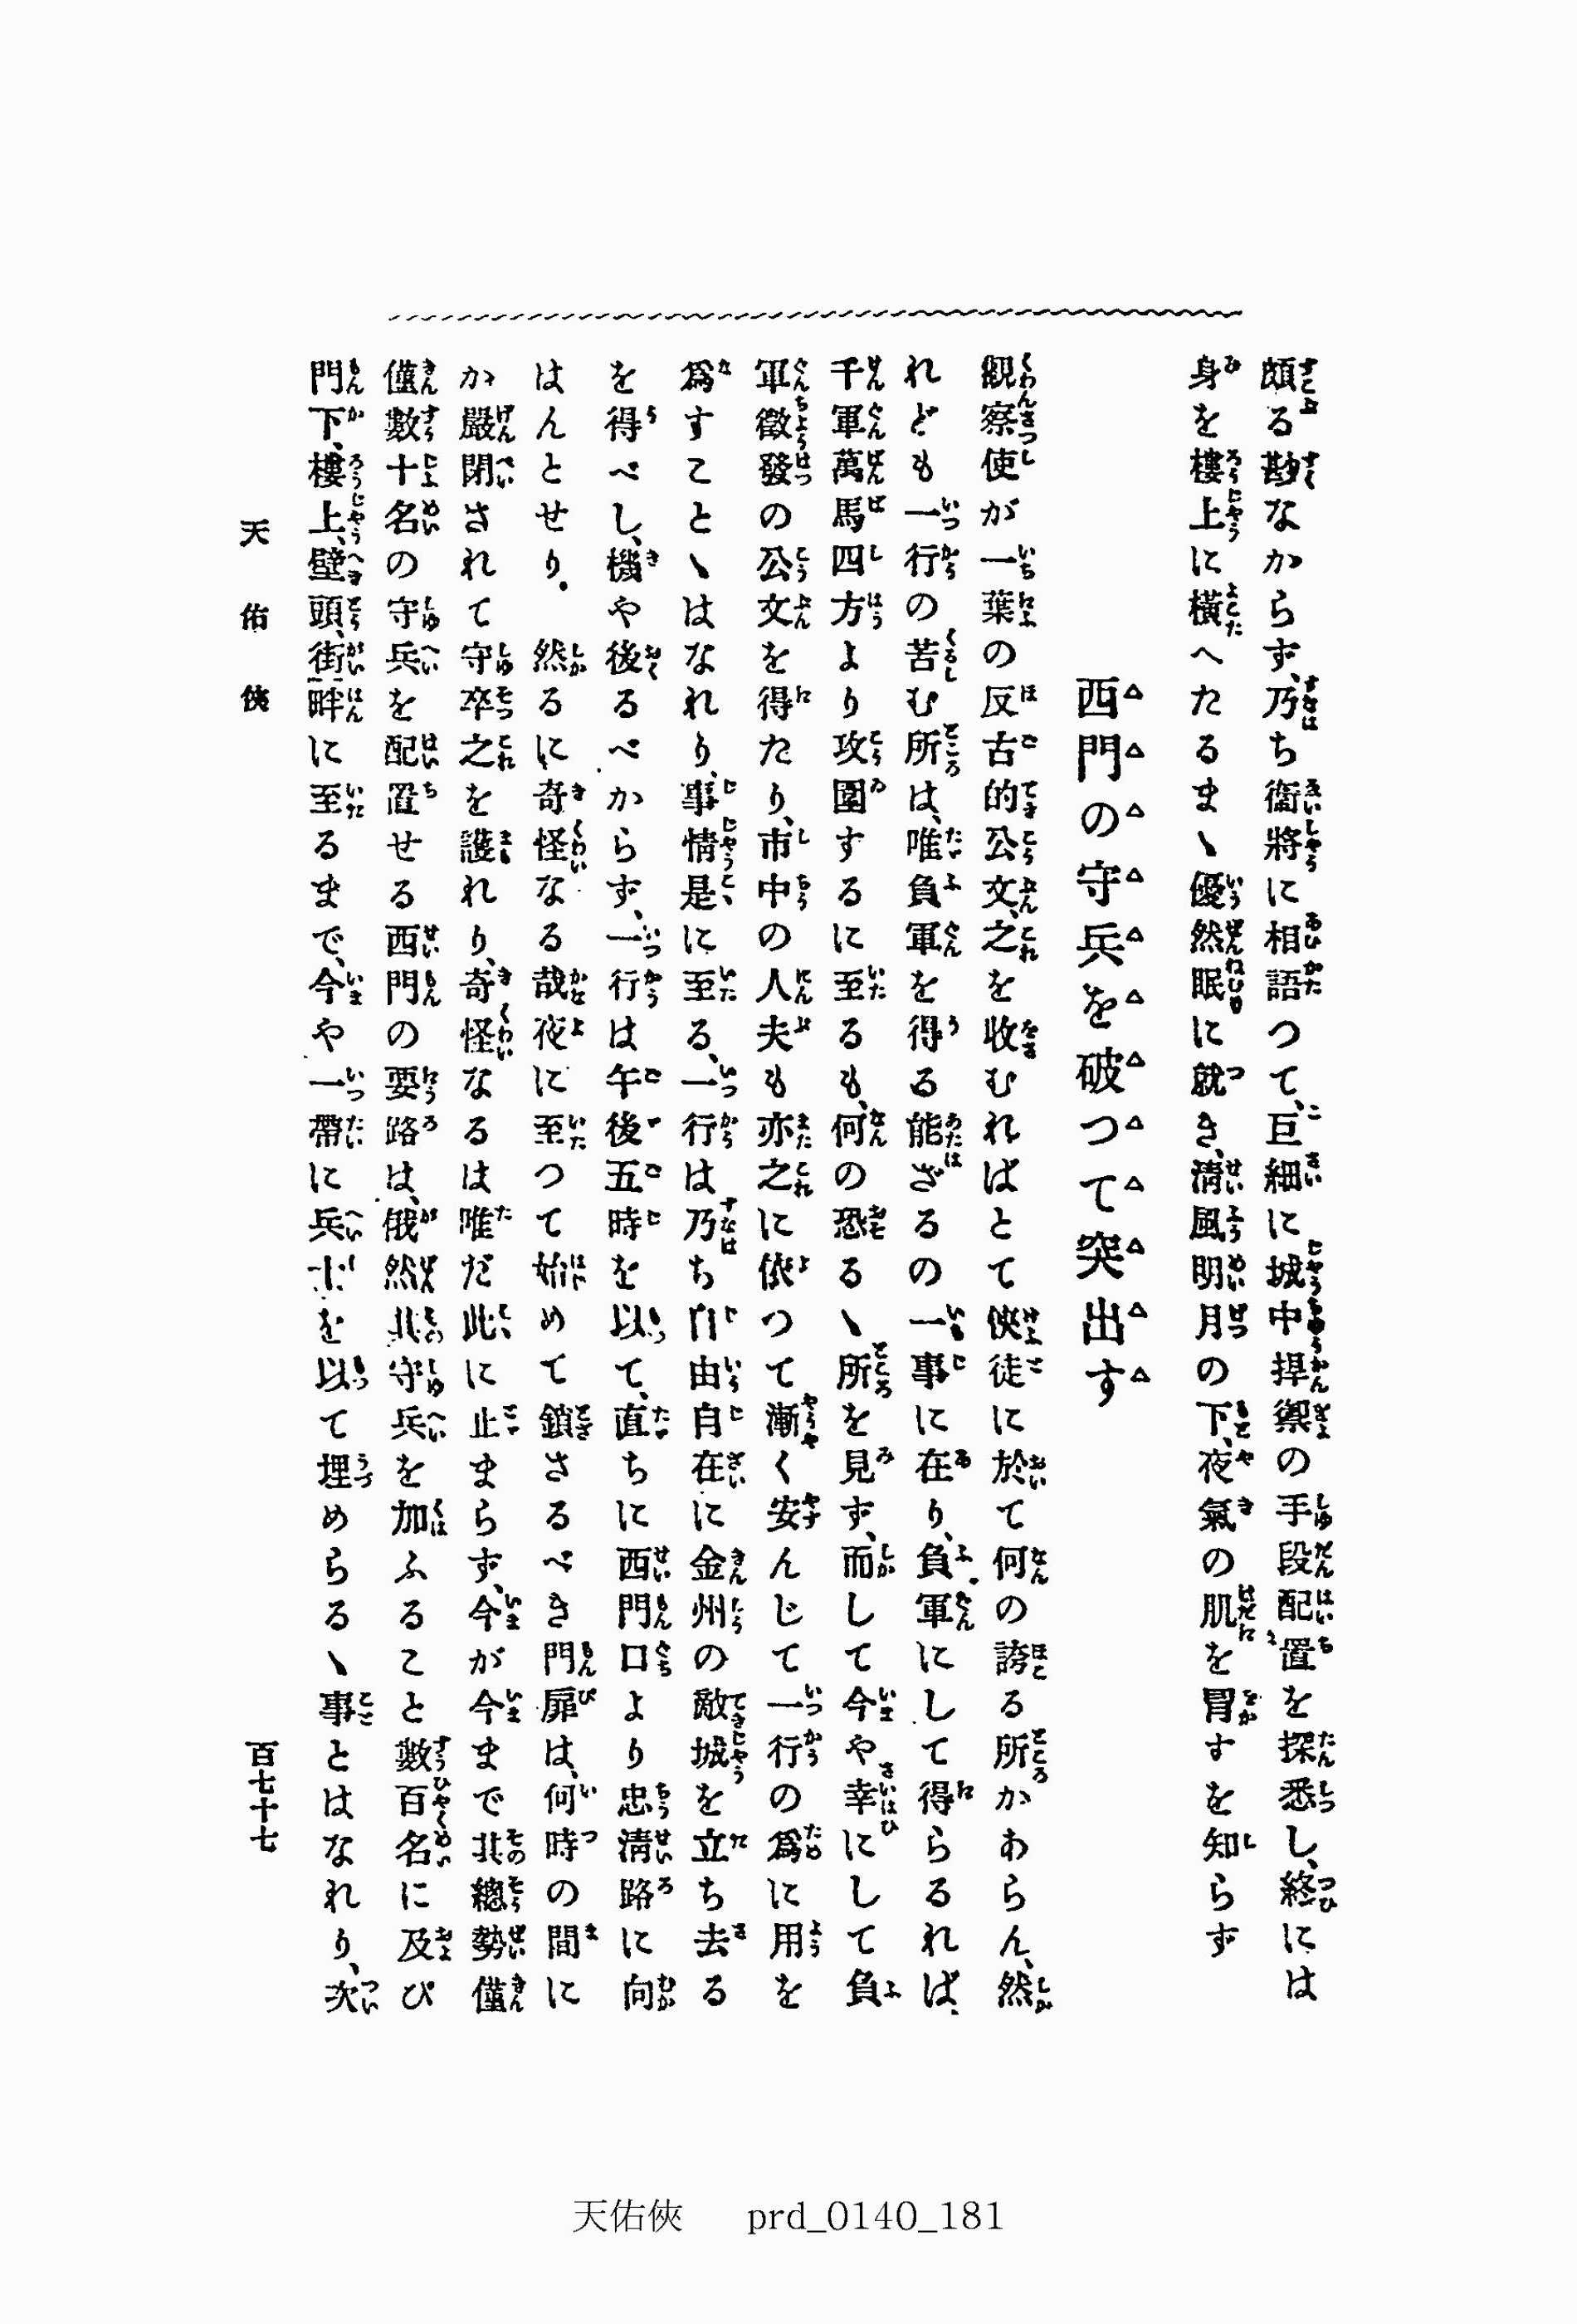 頗る尠なからず、乃ち衞將に相語つて、巨細に城中捍禦の手段配置を探悉し、終には
身を樓上に橫へたるまゝ優然眠に就き、淸風明月の下、夜氣の肌を冐すを知らず
西門の守兵を破つて突出す
觀察使が一葉の反古的公文、之を收むればとて俠徒に於て何の誇る所かあらん、然
れども一行の苦む所は、唯負軍を得る能はざるの一事に在り、負軍にして得らるれば、
千軍萬馬四方より攻圍するに至るも、何の恐るゝ所を見ず、而して今や幸にして負
軍徵發の公文を得たり、市中の人夫も亦之に依つて漸く安んじて一行の爲に用を
爲すことゝはなれり、事情是に至る、一行は乃ち自由自在に金州の敵城を立ち去る
を得べし、機や後るべからず、一行は午後五時を以て、直ちに西門口より忠淸路に向
はんとせり。然るに奇怪なる哉夜に至つて始めて鎖さるべき門扉は、何時の間に
か嚴閉されて守卒之を護れり、奇怪なるは唯だ此に止まらず、今が今まで其總勢僅
僅數十名の守兵を配置せる西門の要路は、俄然其守兵を加ふること數百名に及び
門下、樓上、壁頭、街畔に至るまで、今や一帶に兵士を以て埋めらるゝ事とはなれり、次
天佑俠
百七十七
天佑俠 prd_0140_181